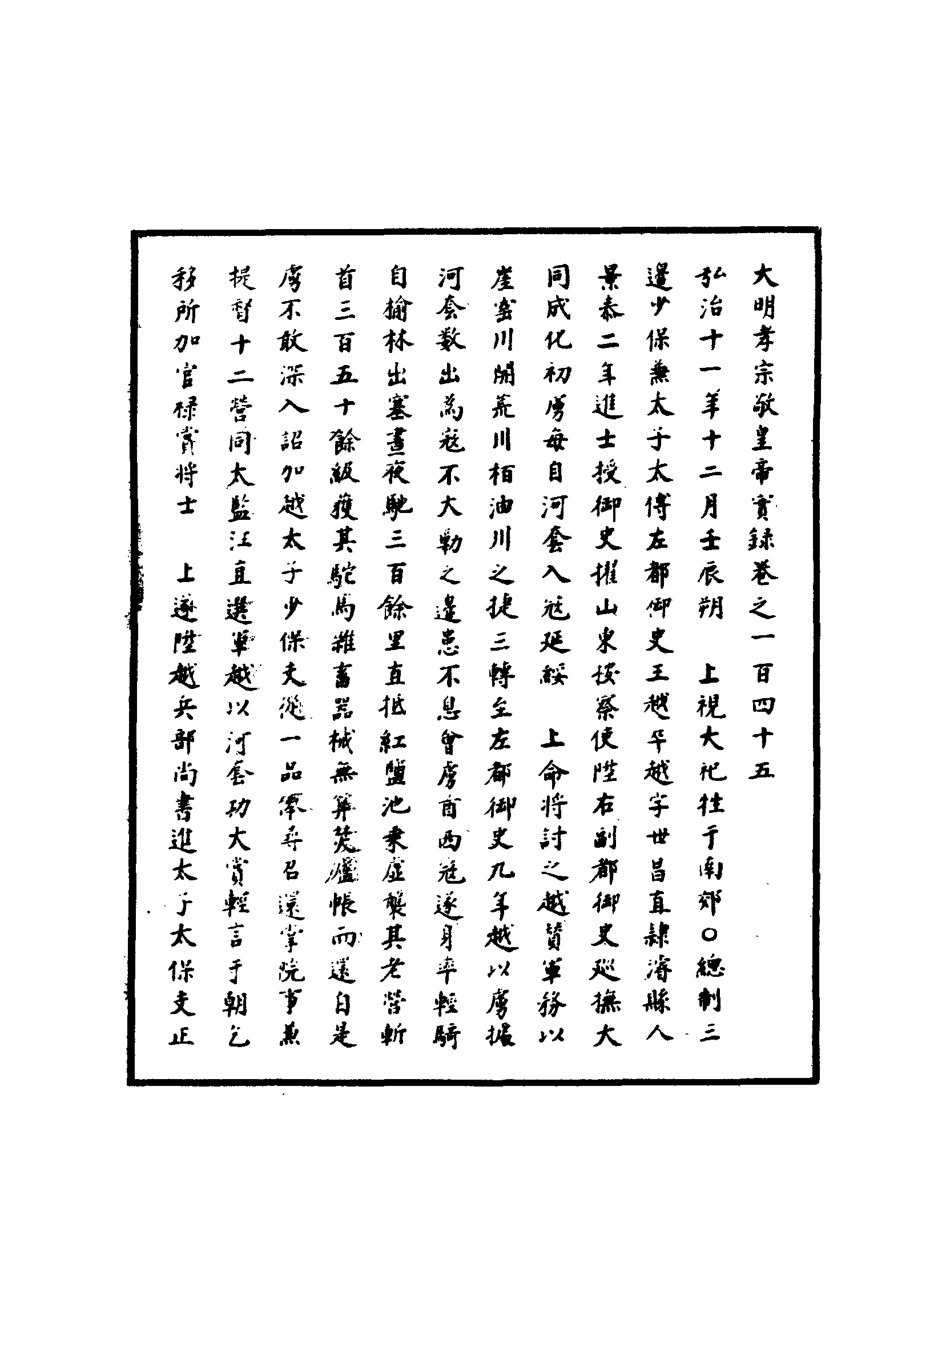 大明孝宗敬皇帝實錄卷之一百四十五
弘治十一年十二月壬辰朔　上視大祀牲于南郊○總制三
邊少保兼太子太傅左都御史王越卒越字世昌直隸濬縣人
景泰二年進士授御史擢山東按察使陞右副都御史巡撫大
同成化初虜每自河套入寇延綏　上命將討之越贊軍務以
崖窑川開荒川栢油川之捷三轉至左都御史九年越以虜據
河套數出為寇不大勦之邊患不息會虜酋西寇遂身率輕騎
自榆林出塞晝夜馳三百餘里直抵紅鹽池乘虛襲其老營斬
首三百五十餘級獲其駝馬雜畜器械無筭焚廬帳而還自是
虜不敢深入詔加越太子少保支從一品俸尋召還掌院事兼
提督十二營同太監汪直選軍越以河套功大賞輕言于朝乞
移所加官祿賞將士　上遂陞越兵部尚書進太子太保支正